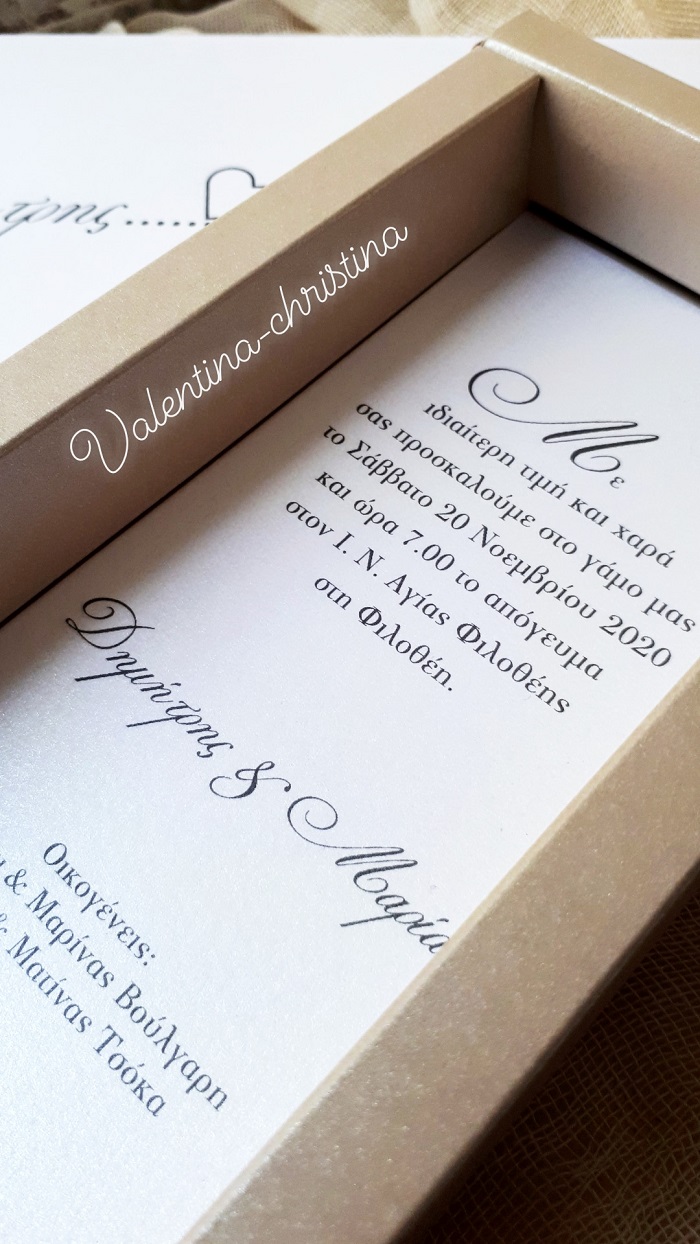 τρης......
Valentina-christina
Με
ιδιαίτερη τιμή και χαρά
σας προσκαλούμε στο γάμο μας
το Σάββατο 20 Νοεμβρίου 2020
και ώρα 7.00 το απόγευμα
στον Ι. Ν. Αγίας Φιλοθέης
στη Φιλοθέη.
Δημήτρης & Μαρία
Οικογένεις:
& Μαρίνας Βούλγαρη
& Ματίνας Τσόκα